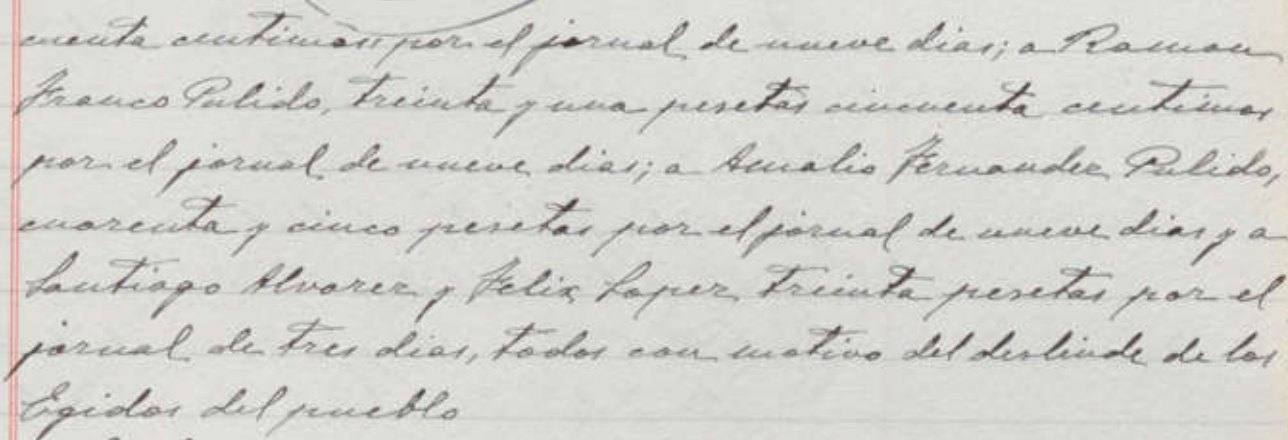 cuenta centimos por el jornal de nueve dias; a Ramon
Franco Pulido, treinta y una pesetas cincuenta centimos
por el jornal de nueve dias; a Amalio Fernandez Pulido,
cuarenta y cinco pesetas por el jornal de nueve dias y a
Santiago Alvarez y Felix Lopez treinta pesetas por el
jornal de tres dias, todos con motivo del deslinde de los
Egidos del pueblo